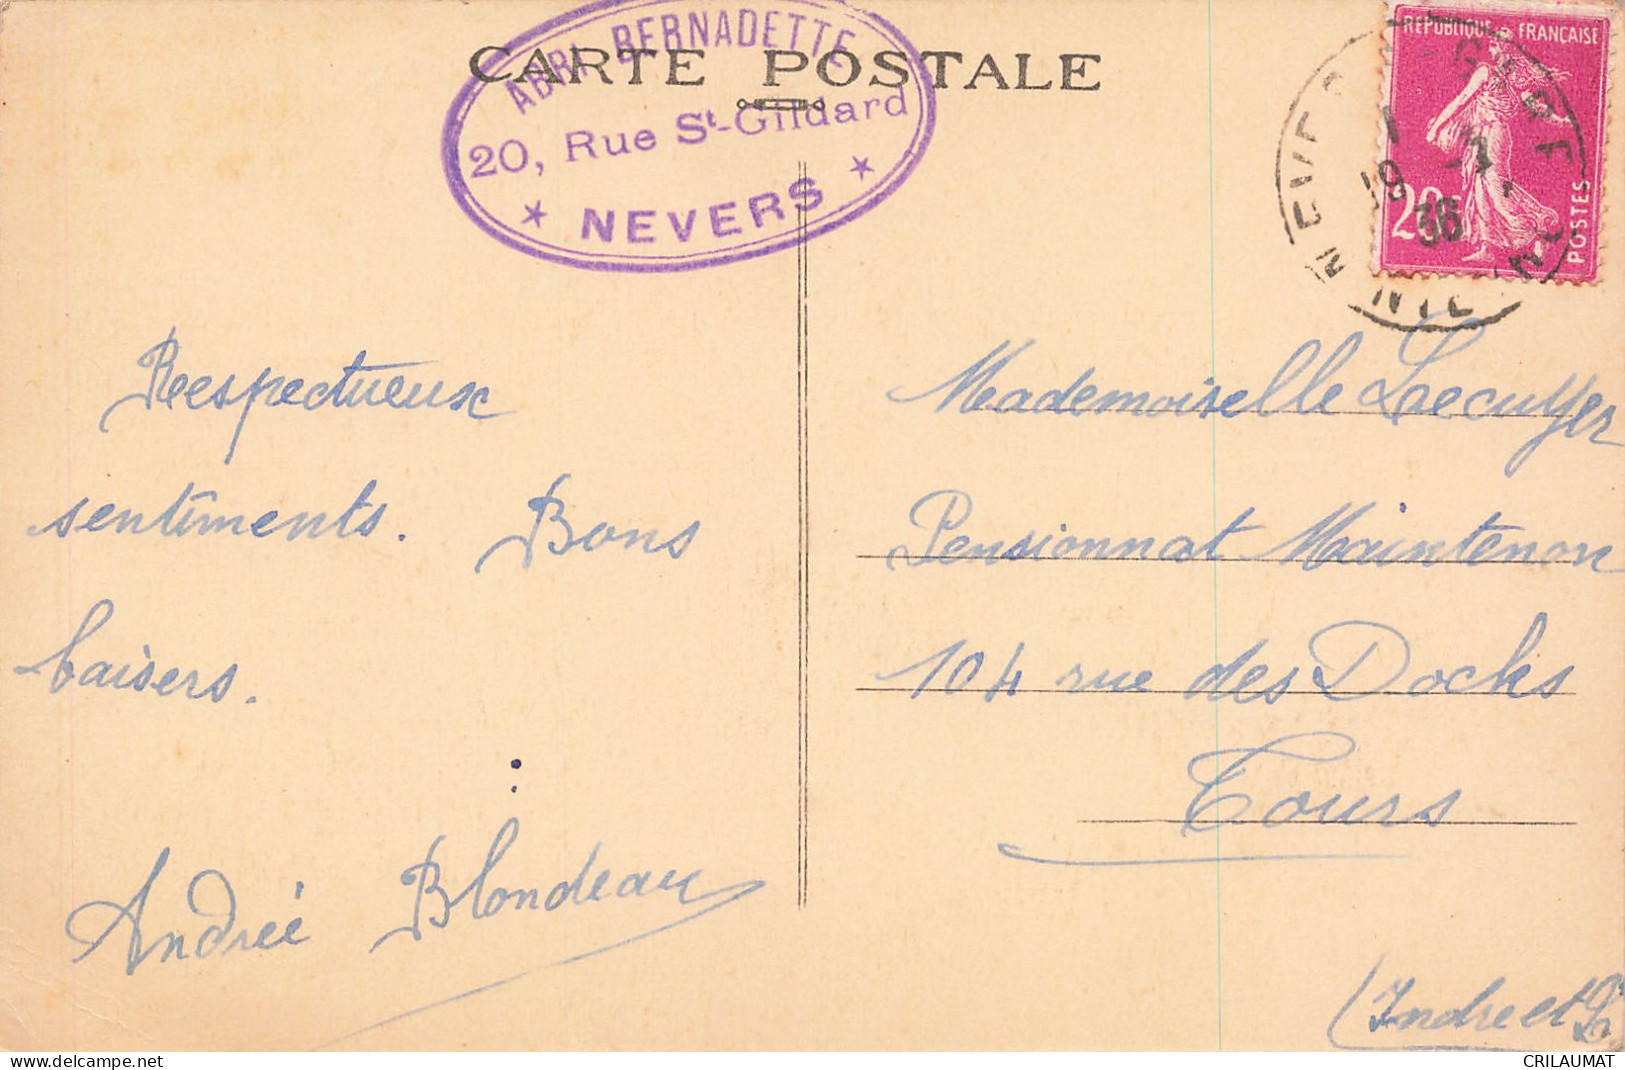 CARTE POSTALE
ABRI BERNADETTE
20, Rue St-Gildard
★ NEVERS ★
REPUBLIQUE FRANÇAISE
20c
POSTES
NEVERS-GARE
19 36
Respectueux
sentiments. Bons
baisers.
Andrée Blondeau
Mademoiselle Lecuyer
Pensionnat Maintenon
104 rue des Docks
Tours
(Indre et L
CRILAUMAT